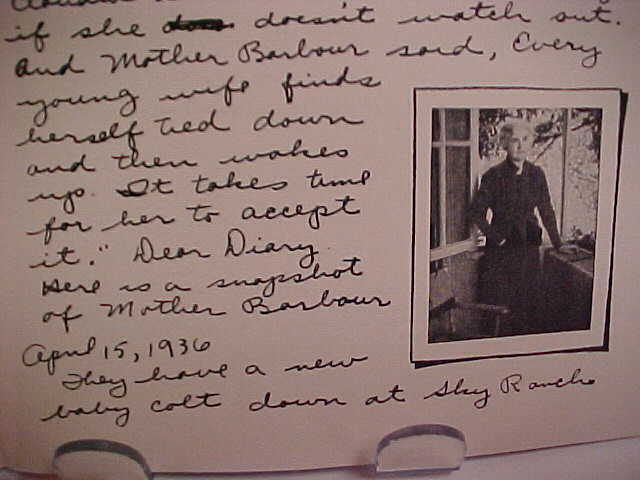 if she doesn't watch out.
And Mother Barbour said, Every
young wife finds
herself tied down
and then wakes
up. It takes time
for her to accept
it." Dear Diary.
Here is a snapshot
of Mother Barbour
April 15, 1936
They have a new
baby colt down at Sky Ranch